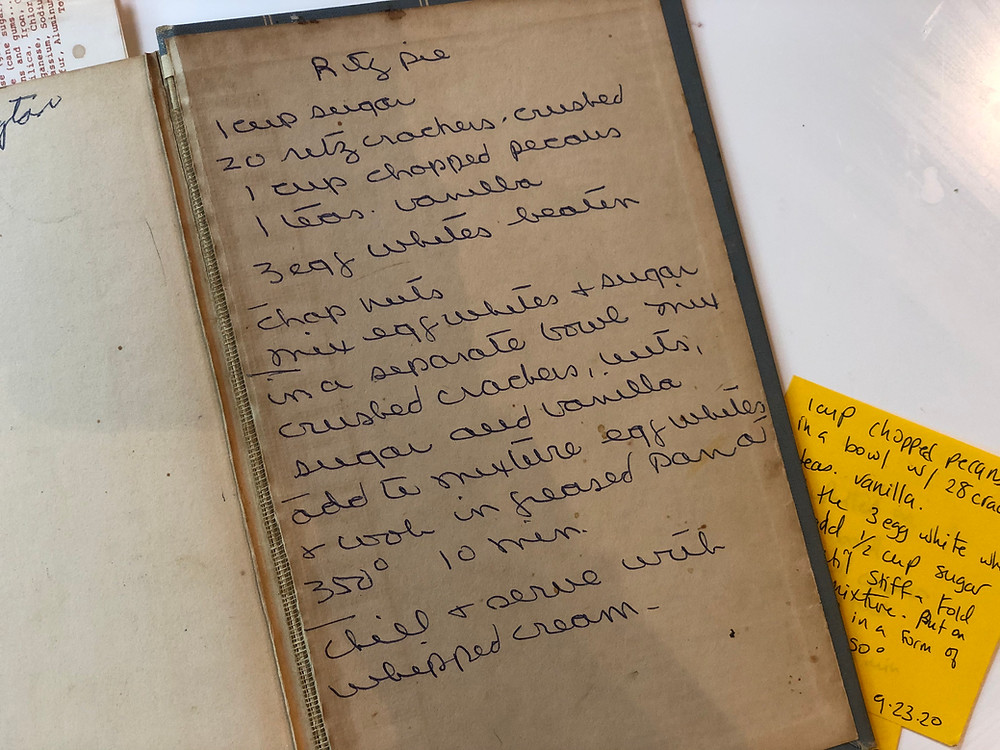 Ritz pie
1 cup sugar
20 ritz crackers, crushed
1 cup chopped pecans
1 teas. vanilla
3 egg whites beaten
chap nuts
mix egg whites + sugar
in a separate bowl mix
crushed crackers, nuts,
sugar and vanilla
add to mixture egg whites
+ cook in greased pan at
350° 10 min.
chill + serve with
whipped cream -
1 cup chopped pecans
in a bowl w/ 28 crac
teas. vanilla.
the 3 egg white wh
add 1/2 cup sugar
stiff + Fold
mixture. Put on
in a form of
50°
9.23.20
(cane sugar,
and gums
Iron,
silica, Chlor
ganese, Sodiu
assium,
Aluminum